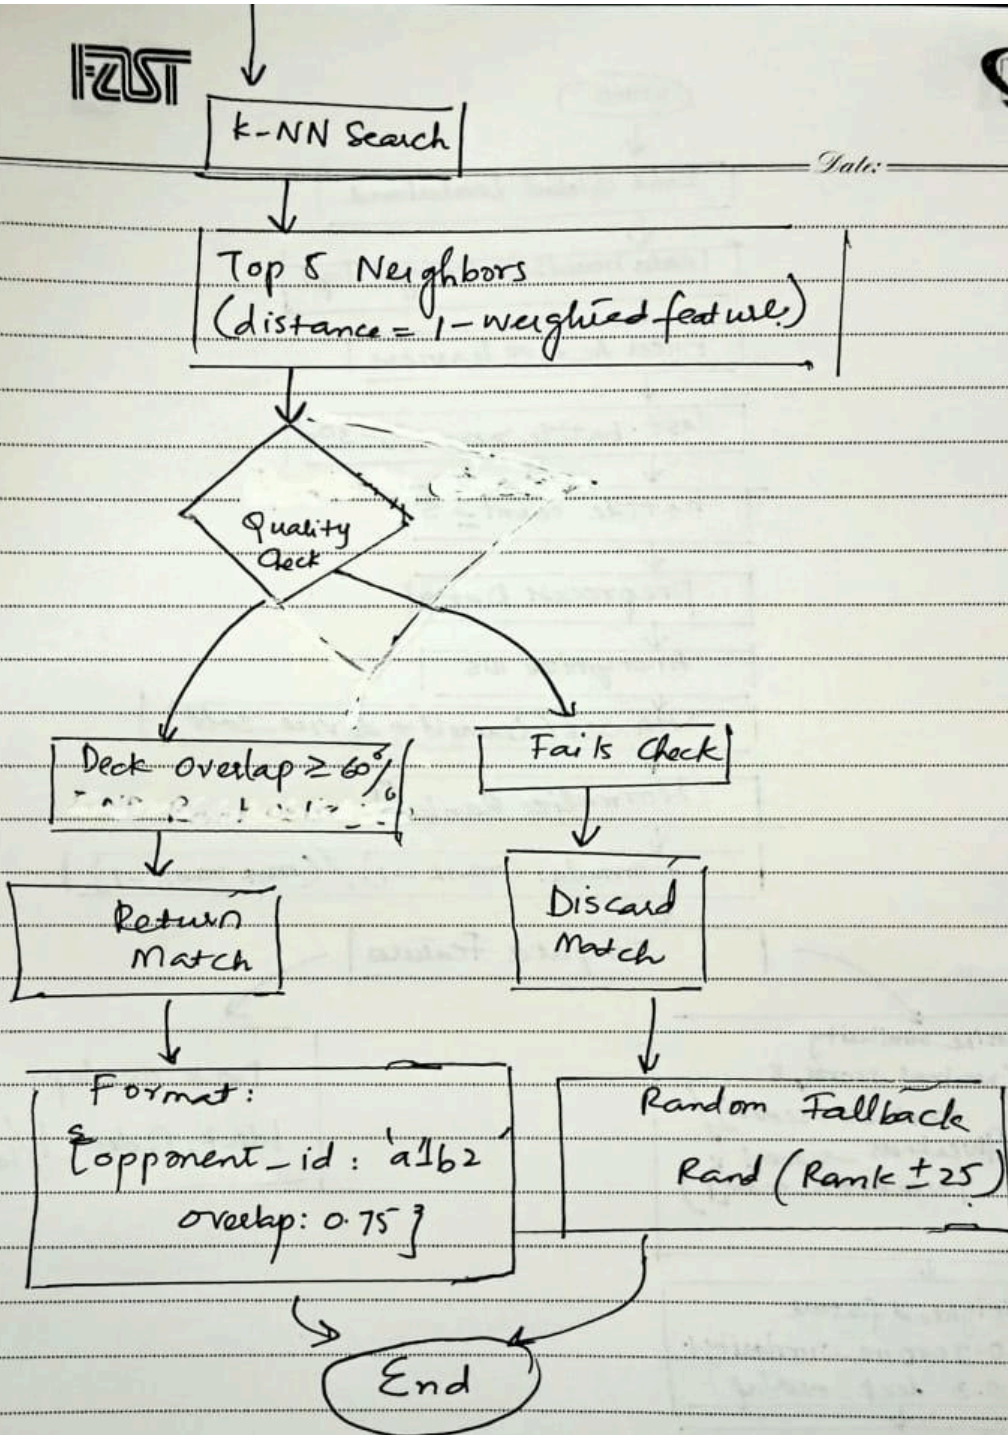 FAST
K-NN Search
Date:
Top 5 Neighbors
(distance = 1-weighted feature)
Quality
Check
Deck overlap ≥ 60%
Fails Check
Return
Match
Discard
Match
Format:
{opponent_id: 'a1b2'
overlap: 0.75}
Random Fallback
Rand (Rank ± 25)
End